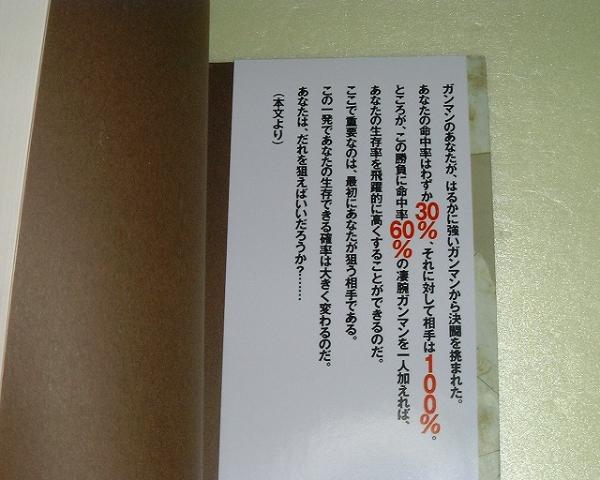 ガンマンのあなたが、はるかに強いガンマンから決闘を挑まれた。
あなたの命中率はわずか30%、それに対して相手は100%。
ところが、この勝負に命中率60%の凄腕ガンマンを一人加えれば、
あなたの生存率を飛躍的に高くすることができるのだ。
ここで重要なのは、最初にあなたが狙う相手である。
この一発であなたの生存できる確率は大きく変わるのだ。
あなたは、だれを狙えばいいだろうか?……
(本文より)